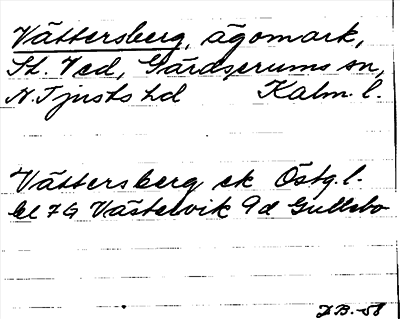 Vättersberg, ägomark,
St. Ved, Gärdserums sn,
N. Tjusts hd Kalm. l.
Vättersberg ek Östg. l.
bl 7G Västervik 9d Gullebo
DB.-58